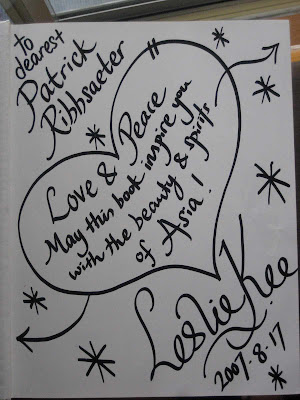 to
dearest
Patrick
Ribbsaeter
Love & Peace"
May this book inspire you
with the beauty & spirits
of Asia!
Leslie Kee
2007.8.17